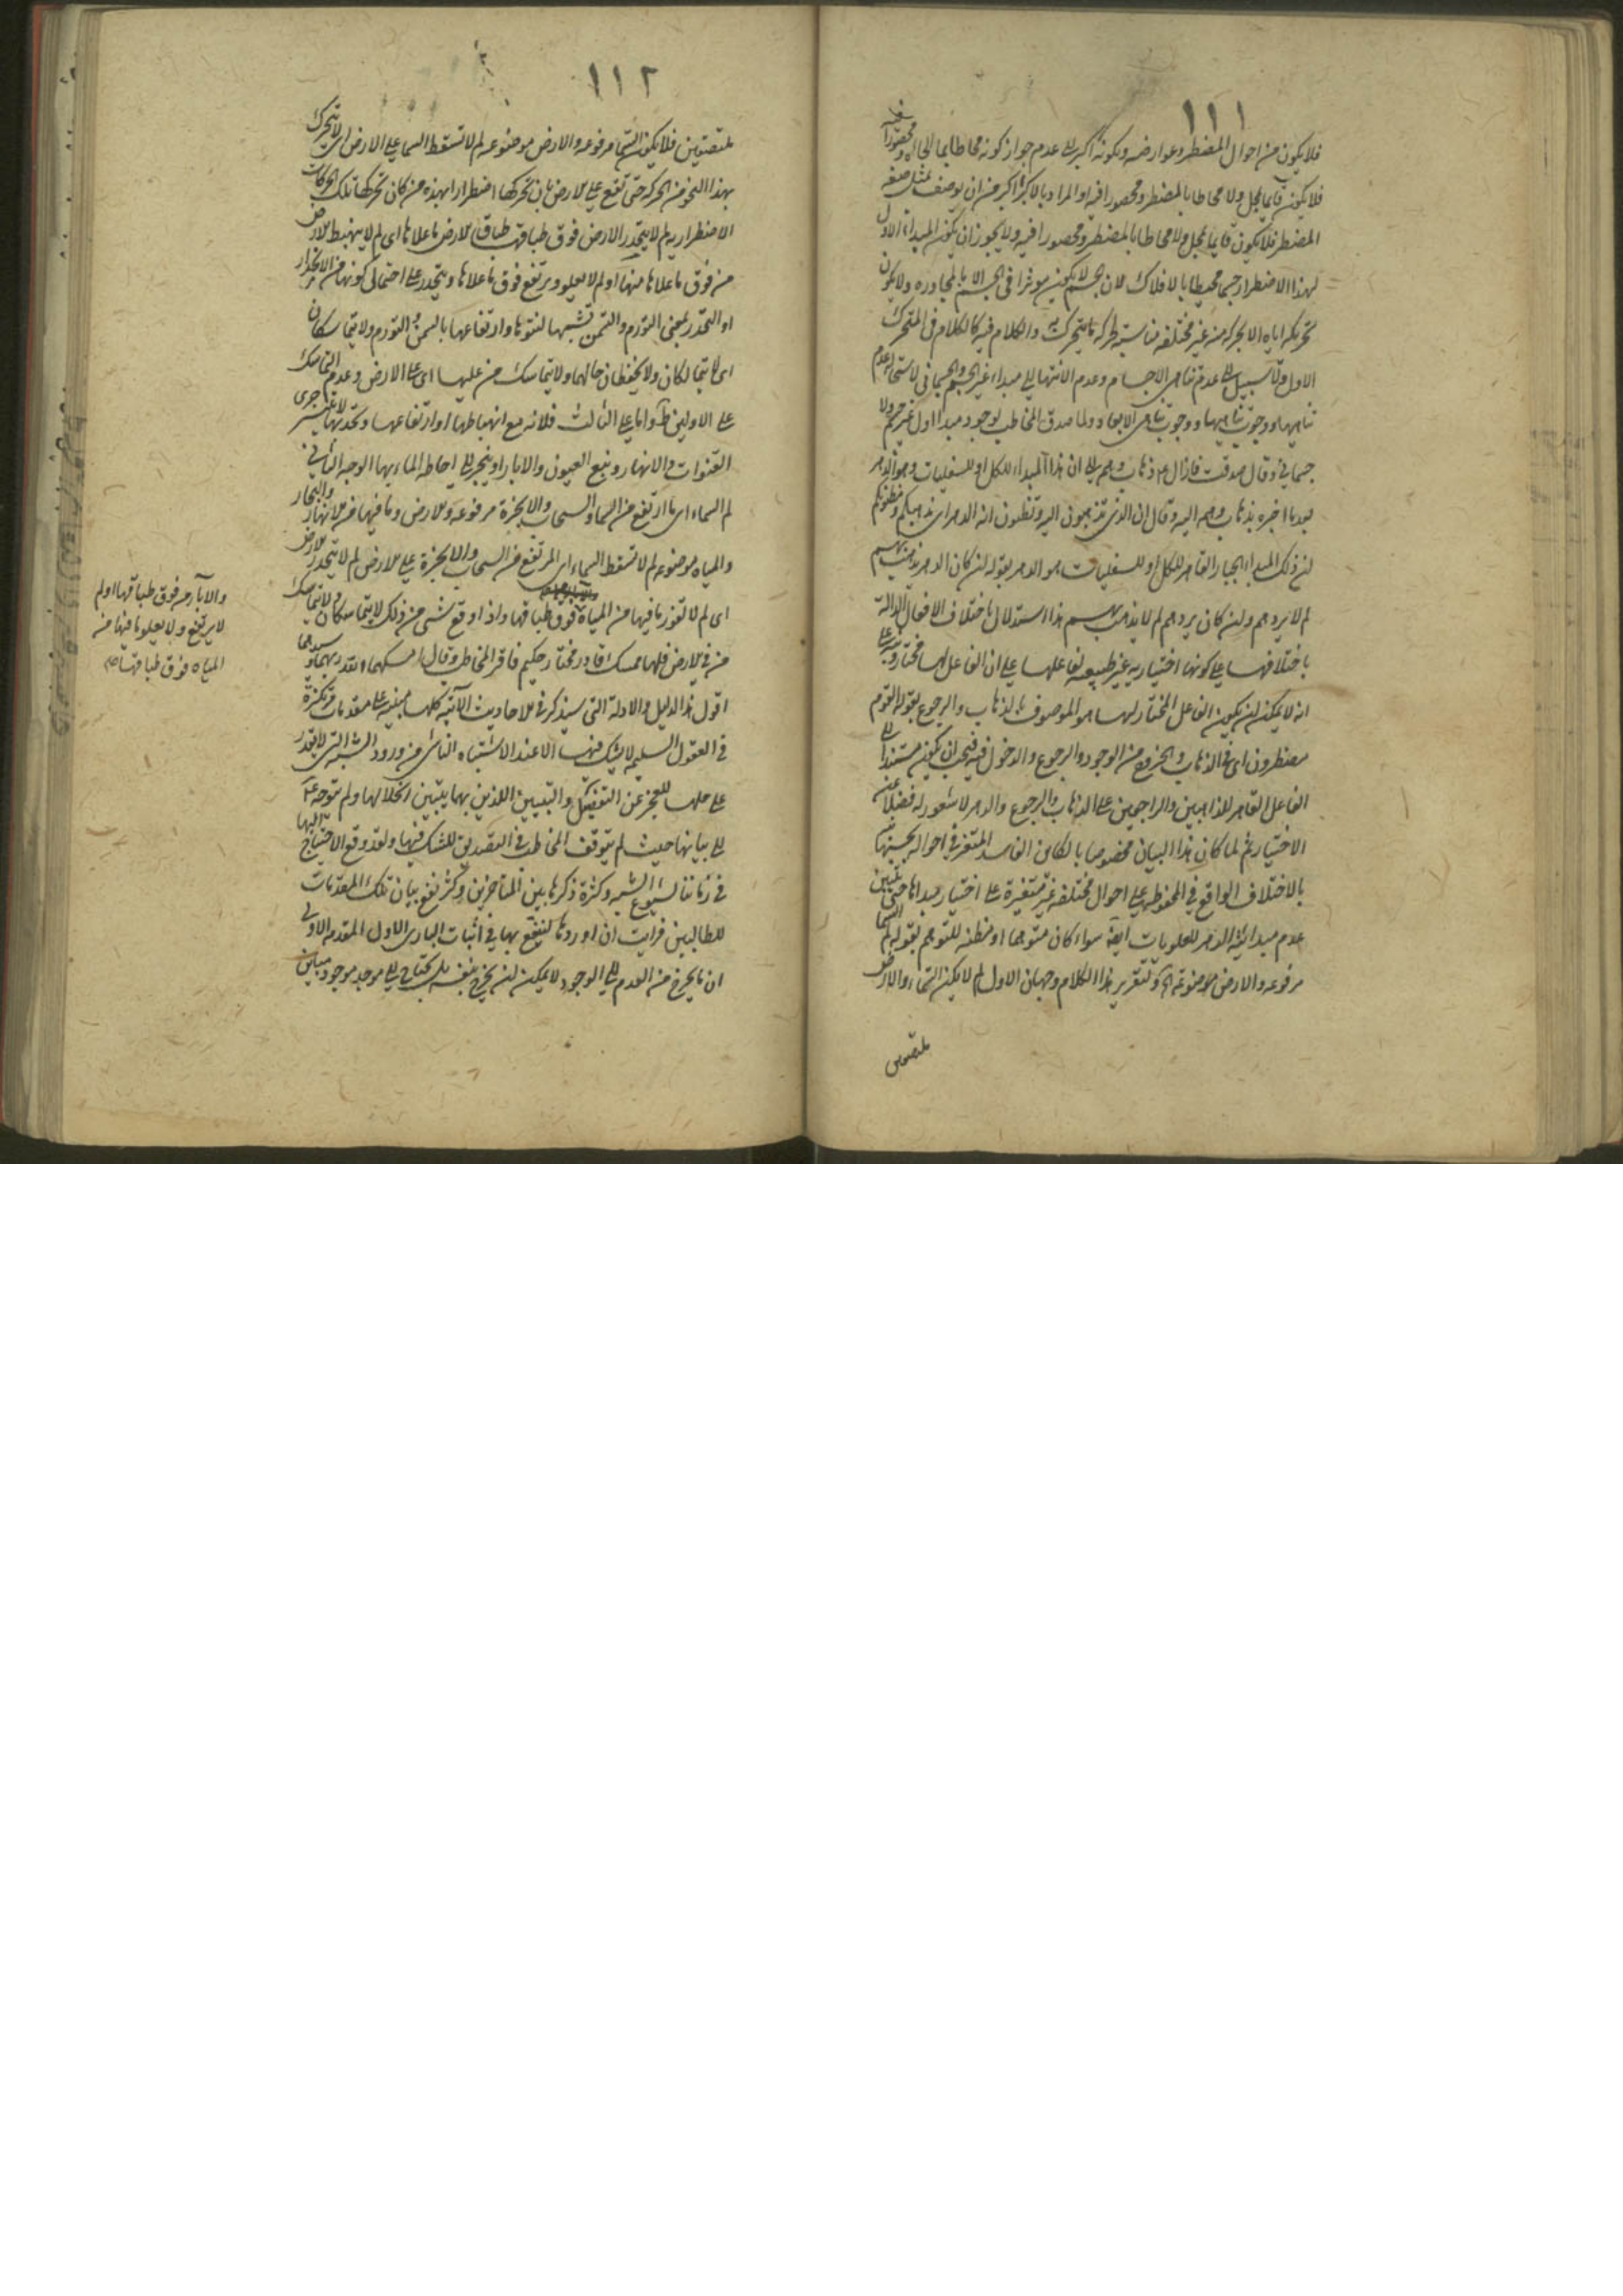 ١١١
فلا يكون من احوال المضطر وعوارضه وبكونه اكبر الى عدم جواز كونه محاطا بما الجاه ومحصورا فيه
فلا يكون قايما بمحل ولا محاطا بالمضطر ومحصورا فيه او المراد بالاكبر اكبر من ان يوصف بمثل صفة
المضطر فلا يكون قايما بمحل ولا محاطا بالمضطر ومحصورا فيه ولا يجوز ان يكون المبداء الاول
لهذا الاضطرار جسما محيطا بالافلاك لان الجسم لا يكون موثرا في الجسم الا بالمجاورة ولا يكون
تحريكه اياه الا بحركة من غير مختلفة مناسبة لحركة ما يتحرك به والكلام فيه كالكلام في المتحرك
الاول ولا سبيل الى عدم تناهى الاجسام وعدم الانتهاء الى مبداء غير الجسم والجسماني لاستحالة عدم
تناهيها ووجوب تناهيها ووجوب تناهى الابعاد ولما صدق المخاطب بوجود مبداء اول غير جسم ولا
جسماني وقال صدقت فازال عم ذهاب وهمه الى ان هذا المبداء للكل او للسفليات هو الدهر
بعد ما اخبره بذهاب وهمه اليه وقال ان الذي تذهبون اليه وتظنون انه الدهر اي مذهبكم ومظنونكم
ان ذلك المبداء الجبار القاهر للكل او للسفليات هو الدهر بقوله ان كان الدهر يذهب بهم
لم لا يردهم وان كان يردهم لم لا يذهب بهم هذا استدلال باختلاف الافعال الدالة
باختلافها على كونها اختيارية غير طبيعة لفاعلها على ان الفاعل لها مختار ونبه على
انه لا يمكن ان يكون الفاعل المختار لها هو الموصوف بالذهاب والرجوع بقوله القوم
مضطرون اي في الذهاب والخروج من الوجود والرجوع والدخول فيه فيجب ان يكون مستندا الى
الفاعل القاهر للذاهبين والراجعين على الذهاب والرجوع والدهر لا شعور له فضلا عن
الاختيار ثم لما كان هذا البيان مخصوصا بالكاين الفاسد المتغير في احواله
بالاختلاف الواقع في المحفوظ على احوال مختلفة غير متغيرة على اختيار مبداها حتى يتبين
عدم مبدائية الدهر للعلويات ايضا سواء كان متوهما او مظنة للتوهم بقوله لم السماء
مرفوعة والارض موضوعة اه ولتقرير هذا الكلام وجهان الاول لم لا يكون السماء والارض
ملتصقتين
١١٢
ملتصقتين فلا يكون السماء مرفوعة والارض موضوعة لم لا تسقط السماء على الارض اي لا يتحرك
بهذا النحو من الحركة حتى تقع على الارض بان تحركها اضطرارا بهذه من كان تحركها تلك الحركات
الاضطرارية لم لا ينحدر الارض فوق طباقها طباق الارض ما علاها اي لم لا ينهبط الارض
من فوق ما علاها منها او لم لا يعلو ويرتفع فوق ما علاها وينحدر على احتمالى كونها من الانحدار
او التحدر بمعنى التورم والتسمن تشبيها لنتوها وارتفاعها بالسمن والتورم ولا يتماسكان
اي لا يتمالكان ولا يحفظان حالهما ولا يتماسك من عليها اي على الارض وعدم التماسك
على الاولين ظ واما على الثالث فلانه مع انهباطها او ارتفاعها وتحدبها لا يتيسر جرى
القنوات والانهار ونبع العيون والابار او ينجر الى احاطة الماء بها الوجه الثاني
لم السماء اي ما ارتفع من السماء والسحاب والابخرة مرفوعة والارض وما فيها من الانهار والبحار
والمياه موضوعة لم لا تسقط السماء اي المرتفع من السحاب والابخرة على الارض لم لا ينحدر الارض
اي لم لا تغور ما فيها من المياه فوق طباقها واذا وقع شيء من ذلك لا يتماسكان ولا يتماسك
من في الارض فلها ممسك قادر مختار حكيم فاقر المخاطب وقال امسكهما الله ربهما وسيدهما
اقول هذا الدليل والادلة التي سيذكر في الاحاديث الآتية كلها مبنية على مقدمات مركزة
في العقول السليمة لا يشك فيها الا عند الاشتباه الناشى من ورود الشبه التي لا يقدر
على حلها للعجز عن التفصيل والتبيين اللذين بهما يتبين انحلالها ولم يتوجه عم
الى بيانها حيث لم يتوقف المخاطب في التصديق للشك فيها ولقد وقع الاحتياج اليها
في زماننا لشيوع الشبه وكثرة ذكرها بين المتاخرين وكثر نفع بيان تلك المقدمات
للطالبين فرايت ان اوردها لينتفع بها في اثبات البارى الاول المقدمة الاولى
ان ما يخرج من العدم الى الوجود لا يمكن ان يخرج بنفسه بل يحتاج الى موجد موجود مباين
والابار من فوق طباقها او لم
لا يرتفع ولا يعلو ما فيها من
المياه فوق طباقها صح